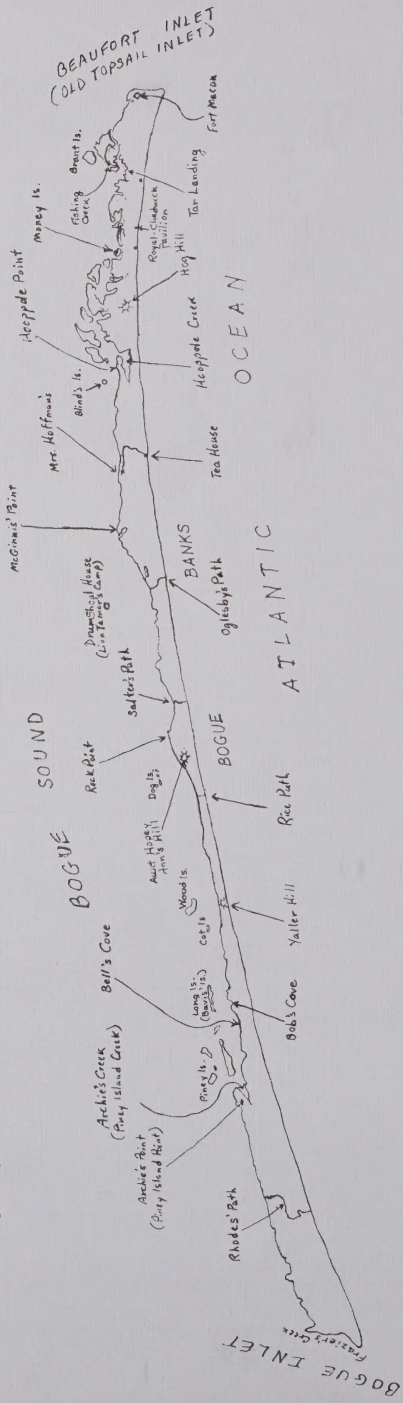 BEAUFORT INLET
(OLD TOPSAIL INLET)
Fort Macon
Brant Is.
Fishing
Creek
Tar Landing
Money Is.
Royal-Chadwick
Pavilion
Hog Hill
Hooppole Point
Hooppole Creek
Blind's Is.
OCEAN
Mrs. Hoffman's
Tea House
McGinnis' Point
Drumshoal House
(Lion Tamer's Camp)
BANKS
Oglesby's Path
ATLANTIC
Salter's Path
SOUND
Rock Point
BOGUE
Dog Is.
Aunt Hopey
Ann's Hill
Rice Path
BOGUE
Wood Is.
Cat Is
Yaller Hill
Bell's Cove
Long Is.
(Davis' Is.)
Bob's Cove
Piney Is.
Archie's Creek
(Piney Island Creek)
Archie's Point
(Piney Island Point)
Rhodes' Path
Frazier's Creek
BOGUE INLET